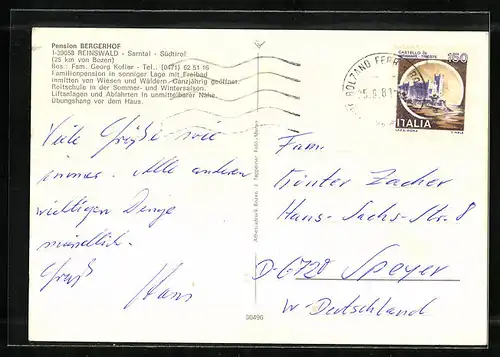 Pension BERGERHOF
I-39058 REINSWALD - Sarntal - Südtirol
(25 km von Bozen)
Bes.: Fam. Georg Kofler - Tel.: (0471) 62 51 16
Familienpension in sonniger Lage mit Freibad
inmitten von Wiesen und Wäldern - Ganzjährig geöffnet.
Reitschule in der Sommer- und Wintersaison.
Liftanlagen und Abfahrten in unmittelbarer Nähe.
Übungshang vor dem Haus.
BOLZANO FERR
CASTELLO DI
150
ITALIA
Viele Grüße wie
immer. Alle anderen
wichtigen Dinge
mündlich.
Gruß
Hans
Fam.
Günter Zacher
Hans-Sachs-Str. 8
D-6720 Speyer
W-Deutschland
36496